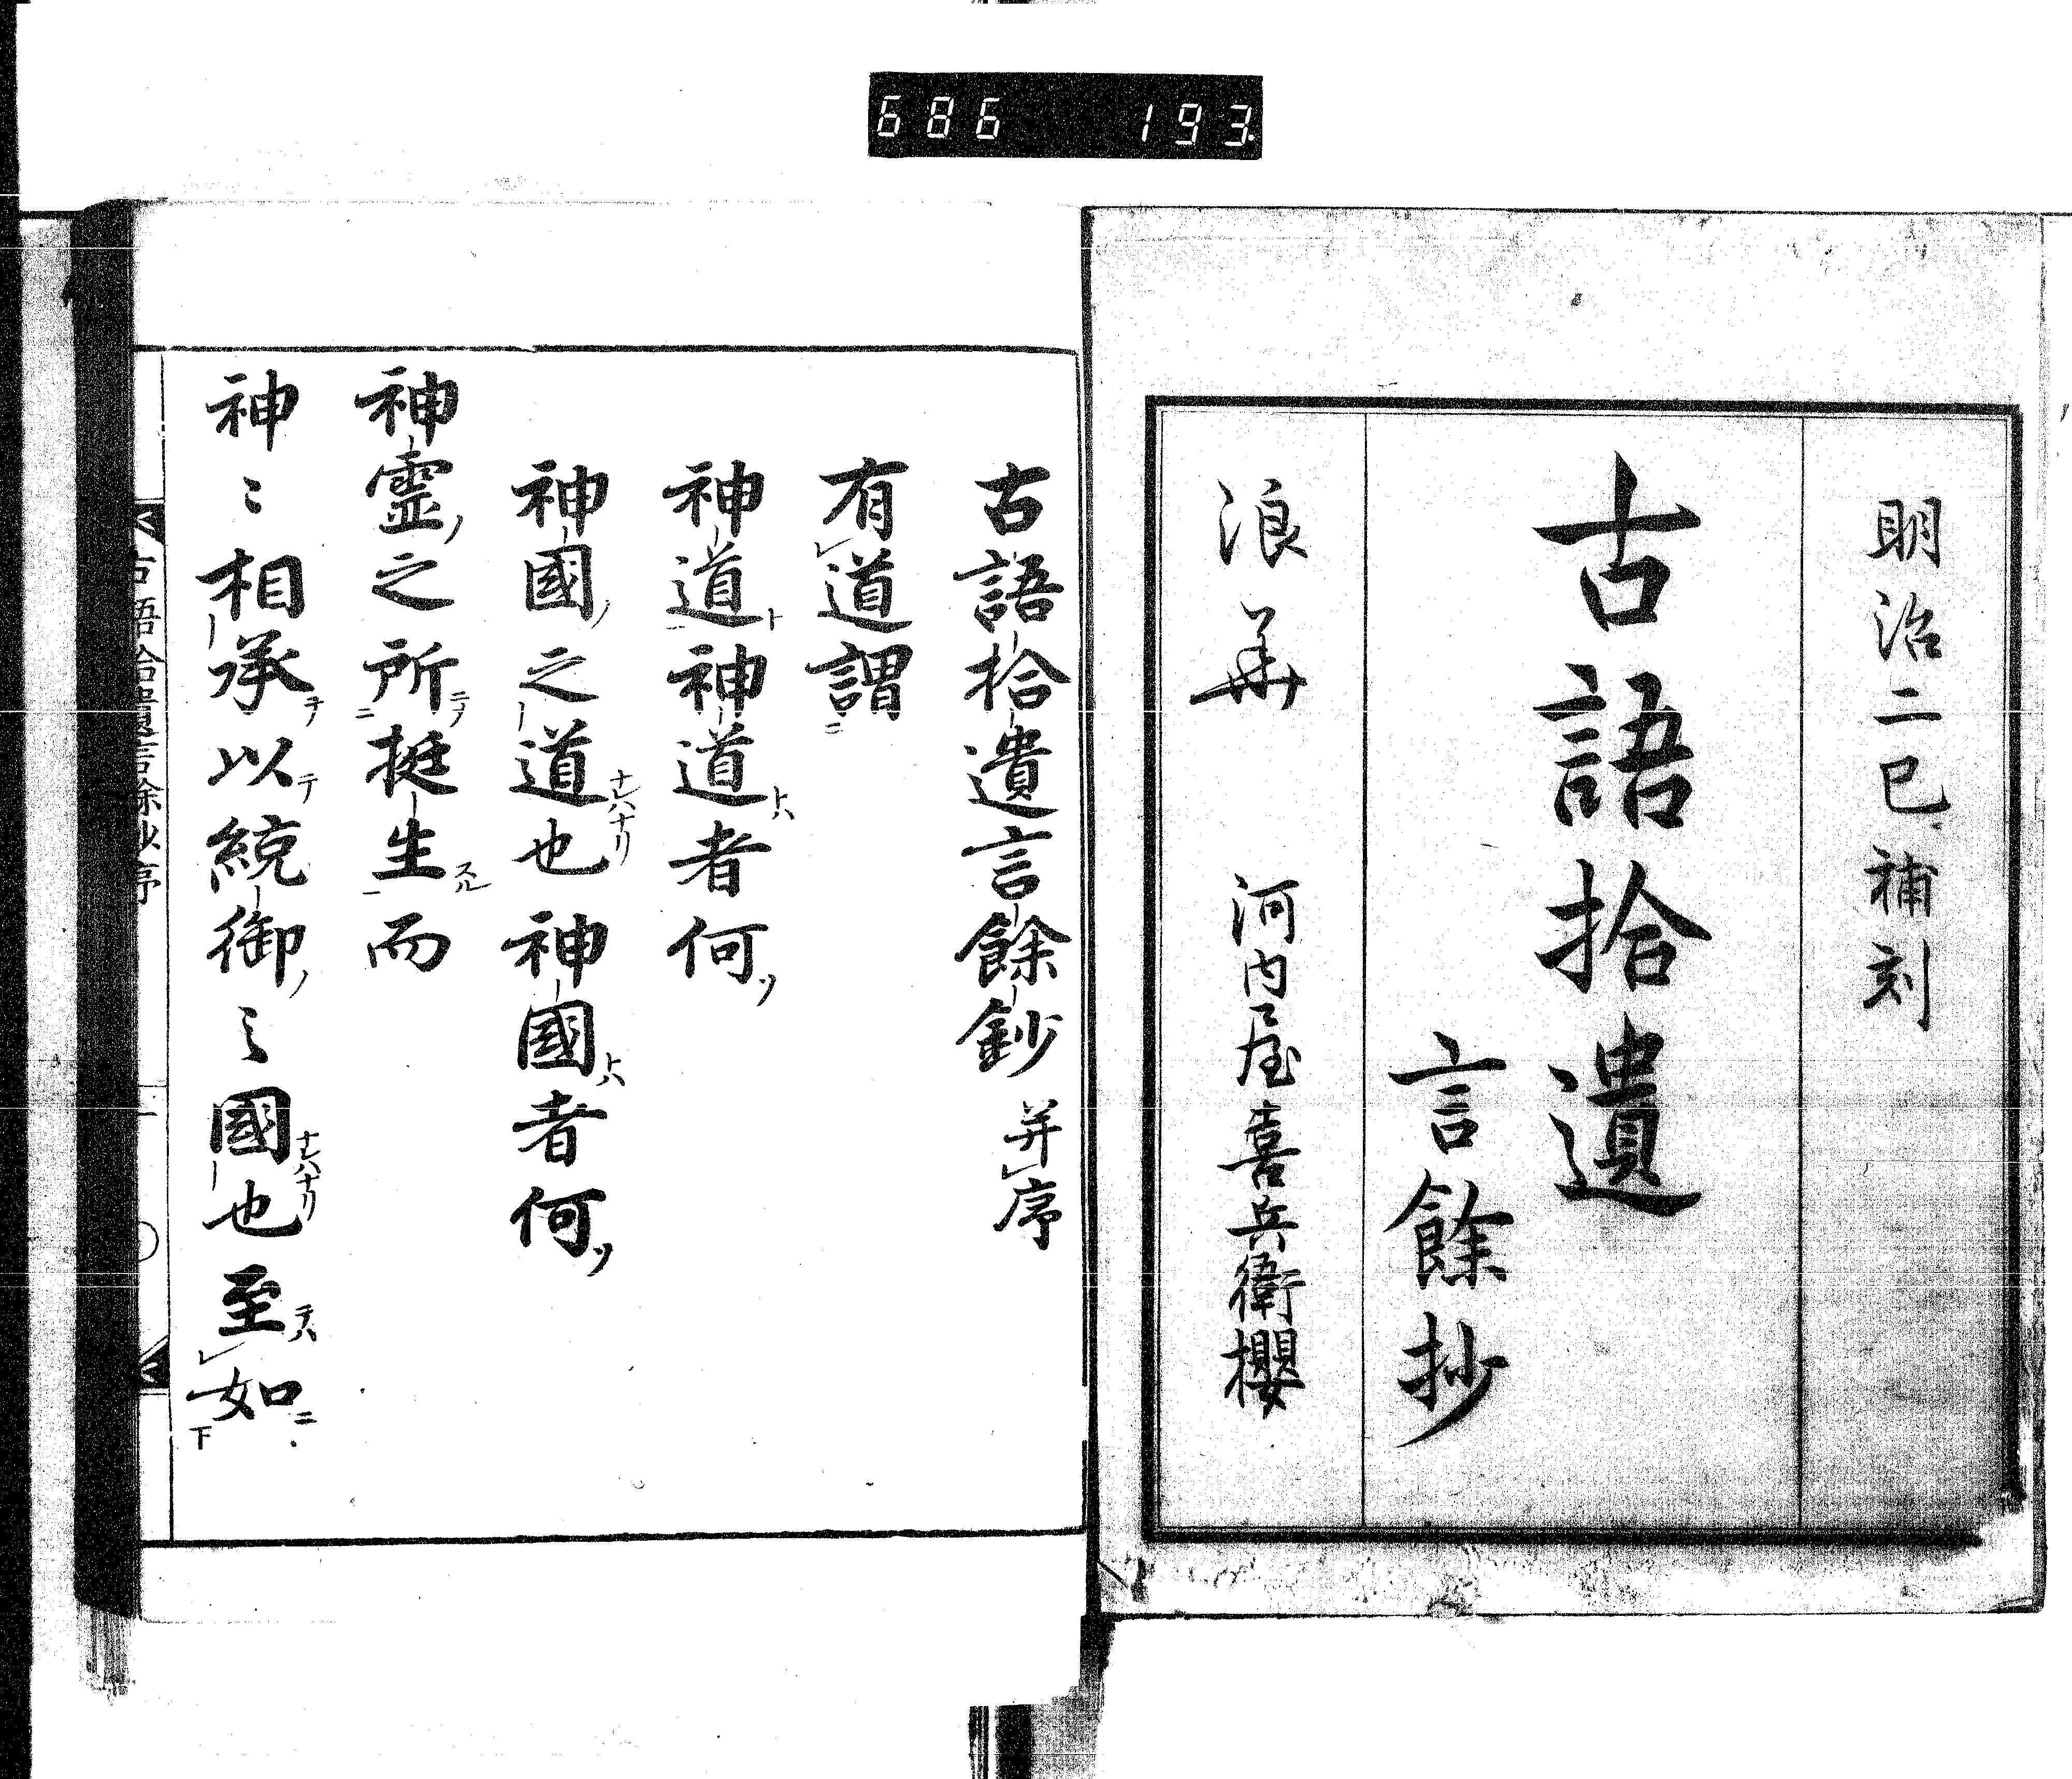 686 193.
明治二巳補刻
古語拾遺
言餘抄
浪華 河内屋喜兵衛櫻
古語拾遺言餘鈔 并序
有道謂
神道神道者何
神國之道也神國者何
神靈之所挺生而
神〻相承以統御〻國也至如
古語拾遺言餘抄序